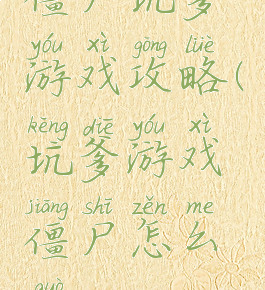 僵尸坑爹
yóu xì gōng lüè
游戏攻略(
kēng diē yóu xì
坑爹游戏
jiāng shī zěn me
僵尸怎么
guò